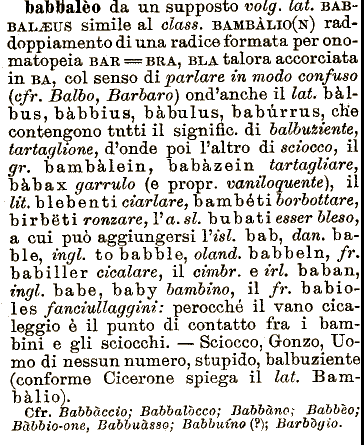 babbalèo da un supposto volg. lat. BAB-
BALÆUS simile al class. BAMBÀLIO(N) rad-
doppiamento di una radice formata per ono-
matopeia BAR = BRA, BLA talora accorciata
in BA, col senso di parlare in modo confuso
(cfr. Balbo, Barbaro) ond'anche il lat. bàl-
bus, bàbbius, bàbulus, babúrrus, che
contengono tutti il signific. di balbuziente,
tartaglione, d'onde poi l'altro di sciocco, il
gr. bambàlein, babàzein tartagliare,
bàbax garrulo (e propr. vaniloquente), il
lit. blebenti ciarlare, bambéti borbottare,
birbëti ronzare, l'a. sl. bubati esser bleso,
a cui può aggiungersi l'isl. bab, dan. ba-
ble, ingl. to babble, oland. babbeln, fr.
babiller cicalare, il cimbr. e irl. baban,
ingl. babe, baby bambino, il fr. babio-
les fanciullaggini: perocché il vano cica-
leggio è il punto di contatto fra i bam-
bini e gli sciocchi. — Sciocco, Gonzo, Uo-
mo di nessun numero, stupido, balbuziente
(conforme Cicerone spiega il lat. Bam-
bàlio).
Cfr. Babbàccio; Babbalòcco; Babbàno; Babbèo;
Bàbbio-one, Babbuàsso; Babbuíno (?); Barbògio.